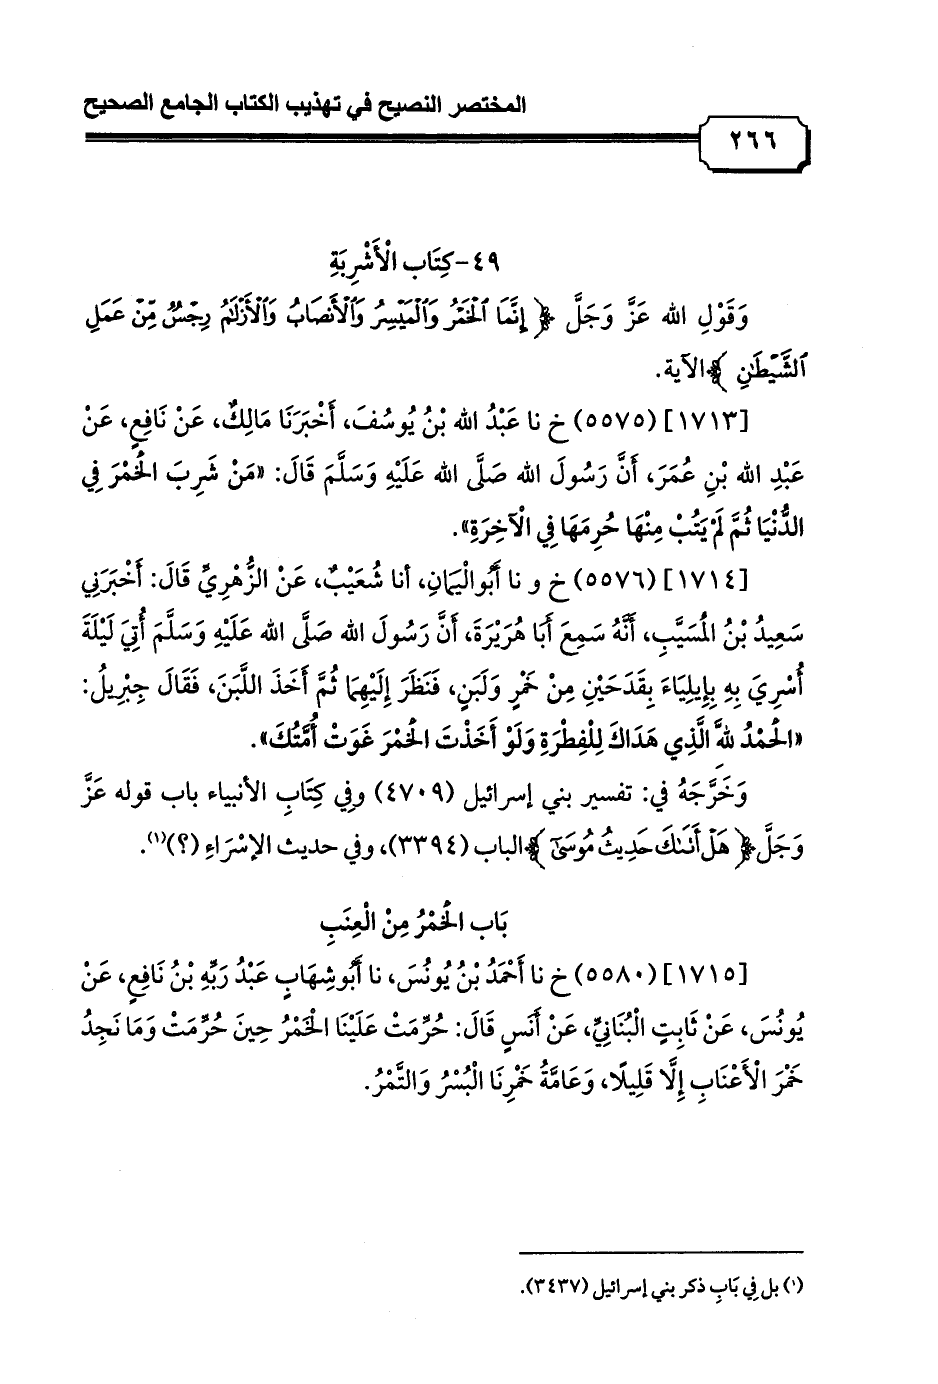 المختصر النصيح في تهذيب الكتاب الجامع الصحيح
٢٦٦
٤٩- كِتَاب الْأَشْرِبَةِ
وَقَوْلِ الله عَزَّ وَجَلَّ ﴿ إِنَّمَا ٱلْخَمْرُ وَٱلْمَيْسِرُ وَٱلْأَنصَابُ وَٱلْأَزْلَٰمُ رِجْسٌ مِّنْ عَمَلِ
ٱلشَّيْطَٰنِ ﴾ الآية.
[١٧١٣] (٥٥٧٥) خ نا عَبْدُ الله بْنُ يُوسُفَ، أَخْبَرَنَا مَالِكٌ، عَنْ نَافِعٍ، عَنْ
عَبْدِ الله بْنِ عُمَرَ، أَنَّ رَسُولَ الله صَلَّى الله عَلَيْهِ وَسَلَّمَ قَالَ: «مَنْ شَرِبَ الْخَمْرَ فِي
الدُّنْيَا ثُمَّ لَمْ يَتُبْ مِنْهَا حُرِمَهَا فِي الْآخِرَةِ».
[١٧١٤] (٥٥٧٦) خ و نا أَبُو الْيَمَانِ، أنا شُعَيْبٌ، عَنْ الزُّهْرِيِّ قَالَ: أَخْبَرَنِي
سَعِيدُ بْنُ الْمُسَيَّبِ، أَنَّهُ سَمِعَ أَبَا هُرَيْرَةَ، أَنَّ رَسُولَ الله صَلَّى الله عَلَيْهِ وَسَلَّمَ أُتِيَ لَيْلَةَ
أُسْرِيَ بِهِ بِإِيلِيَاءَ بِقَدَحَيْنِ مِنْ خَمْرٍ وَلَبَنٍ، فَنَظَرَ إِلَيْهِمَا ثُمَّ أَخَذَ اللَّبَنَ، فَقَالَ جِبْرِيلُ:
«الْحَمْدُ للهِ الَّذِي هَدَاكَ لِلْفِطْرَةِ وَلَوْ أَخَذْتَ الْخَمْرَ غَوَتْ أُمَّتُكَ».
وَخَرَّجَهُ فِي: تفسير بني إسرائيل (٤٧٠٩) وفِي كِتَابِ الأنبياء باب قوله عَزَّ
وَجَلَّ ﴿ هَلْ أَتَىٰكَ حَدِيثُ مُوسَىٰٓ ﴾ الباب (٣٣٩٤)، وفي حديث الإِسْرَاءِ (؟)(١).
بَاب الْخَمْرُ مِنْ الْعِنَبِ
[١٧١٥] (٥٥٨٠) خ نا أَحْمَدُ بْنُ يُونُسَ، نا أَبُو شِهَابٍ عَبْدُ رَبِّهِ بْنُ نَافِعٍ، عَنْ
يُونُسَ، عَنْ ثَابِتٍ الْبُنَانِيِّ، عَنْ أَنَسٍ قَالَ: حُرِّمَتْ عَلَيْنَا الْخَمْرُ حِينَ حُرِّمَتْ وَمَا نَجِدُ
خَمْرَ الْأَعْنَابِ إِلَّا قَلِيلًا، وَعَامَّةُ خَمْرِنَا الْبُسْرُ وَالتَّمْرُ.
(١) بل فِي بَابِ ذكر بني إسرائيل (٣٤٣٧).